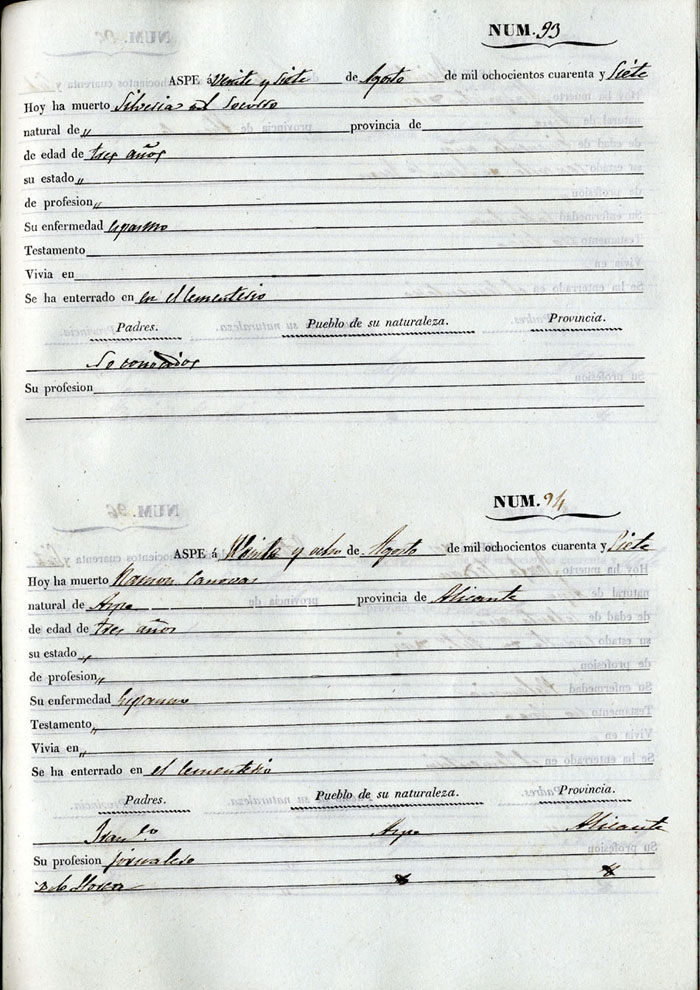 NUM. 93
ASPE á Veinte y Siete de Agosto de mil ochocientos cuarenta y Siete
Hoy ha muerto Silvestra del Socorro
natural de „ provincia de
de edad de tres años
su estado „
de profesion „
Su enfermedad espasmo
Testamento
Vivia en
Se ha enterrado en en el Cementerio
Padres. Pueblo de su naturaleza. Provincia.
conocidos
Su profesion
NUM. 94
ASPE á Veinte y ocho de Agosto de mil ochocientos cuarenta y Siete
Hoy ha muerto Ramon Canovas
natural de Aspe provincia de Alicante
de edad de tres años
su estado „
de profesion „
Su enfermedad Espasmo
Testamento „
Vivia en „
Se ha enterrado en el Cementerio
Padres. Pueblo de su naturaleza. Provincia.
Fran.co Aspe Alicante
Su profesion jornalero